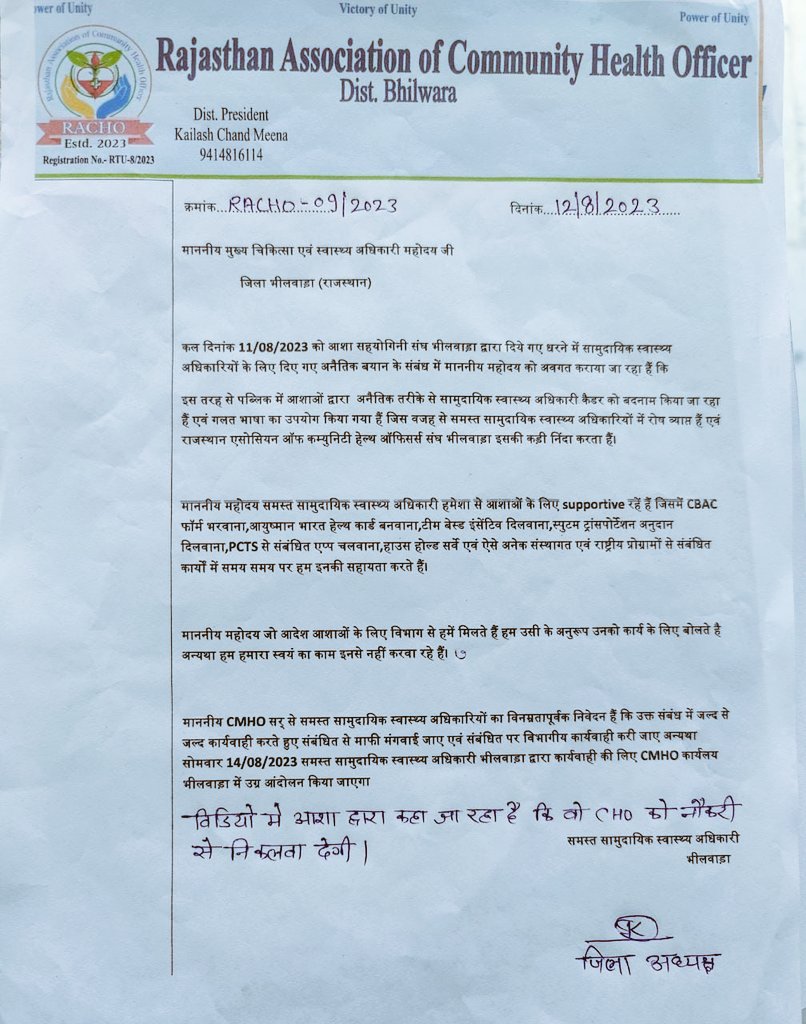 ower of Unity
Victory of Unity
Power of Unity
Rajasthan Association of Community Health Officer
Rajasthan Association of Community Health Officer
Dist. Bhilwara
RACHO
Estd. 2023
Registration No.- RTU-8/2023
Dist. President
Kailash Chand Meena
9414816114
क्रमांक..RACHO-09/2023
दिनांक...12/8/2023......
माननीय मुख्य चिकित्सा एवं स्वास्थ्य अधिकारी महोदय जी
जिला भीलवाडा (राजस्थान)
कल दिनांक 11/08/2023 को आशा सहयोगिनी संघ भीलवाडा द्वारा दिये गए धरने में सामुदायिक स्वास्थ्य
अधिकारियों के लिए दिए गए अनैतिक बयान के संबंध में माननीय महोदय को अवगत कराया जा रहा हैं कि
इस तरह से पब्लिक में आशाओं द्वारा अनैतिक तरीके से सामुदायिक स्वास्थ्य अधिकारी कैडर को बदनाम किया जा रहा
हैं एवं गलत भाषा का उपयोग किया गया हैं जिस वजह से समस्त सामुदायिक स्वास्थ्य अधिकारियों में रोष व्याप्त हैं एवं
राजस्थान एसोसियन ऑफ कम्युनिटी हेल्थ ऑफिसर्स संघ भीलवाडा इसकी कड़ी निंदा करता हैं।
माननीय महोदय समस्त सामुदायिक स्वास्थ्य अधिकारी हमेशा से आशाओं के लिए supportive रहें हैं जिसमें CBAC
फॉर्म भरवाना,आयुष्मान भारत हेल्थ कार्ड बनवाना,टीम बेस्ड इंसेंटिव दिलवाना,स्पुटम ट्रांसपोर्टेशन अनुदान
दिलवाना,PCTS से संबंधित एप्प चलवाना,हाउस होल्ड सर्वे एवं ऐसे अनेक संस्थागत एवं राष्ट्रीय प्रोग्रामों से संबंधित
कार्यों में समय समय पर हम इनकी सहायता करते हैं।
माननीय महोदय जो आदेश आशाओं के लिए विभाग से हमें मिलते हैं हम उसी के अनुरूप उनको कार्य के लिए बोलते है
अन्यथा हम हमारा स्वयं का काम इनसे नहीं करवा रहे हैं।
माननीय CMHO सर् से समस्त सामुदायिक स्वास्थ्य अधिकारियों का विनम्रतापूर्वक निवेदन हैं कि उक्त संबंध में जल्द से
जल्द कार्यवाही करते हुए संबंधित से माफी मंगवाई जाए एवं संबंधित पर विभागीय कार्यवाही करी जाए अन्यथा
सोमवार 14/08/2023 समस्त सामुदायिक स्वास्थ्य अधिकारी भीलवाडा द्वारा कार्यवाही की लिए CMHO कार्यलय
भीलवाडा में उग्र आंदोलन किया जाएगा
विडियो मे आशा द्वारा कहा जा रहा है कि वो CHO को नौकरी
से निकलवा देगी।
समस्त सामुदायिक स्वास्थ्य अधिकारी
भीलवाडा
जिला अध्यक्ष